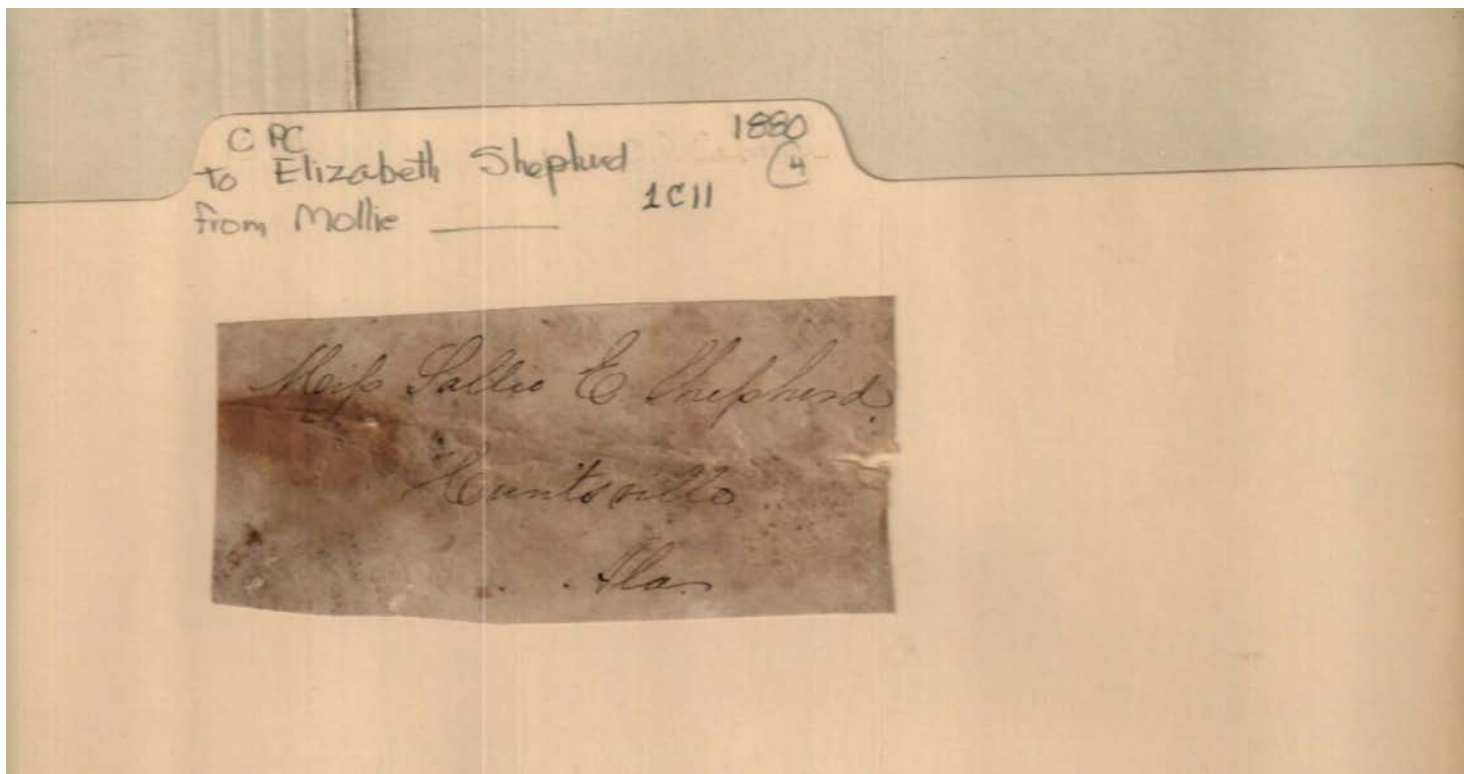 C PC 1880
to Elizabeth Shepherd 4
from Mollie 1C11
Miss Sallie E Shepherd
Huntsville
Ala.